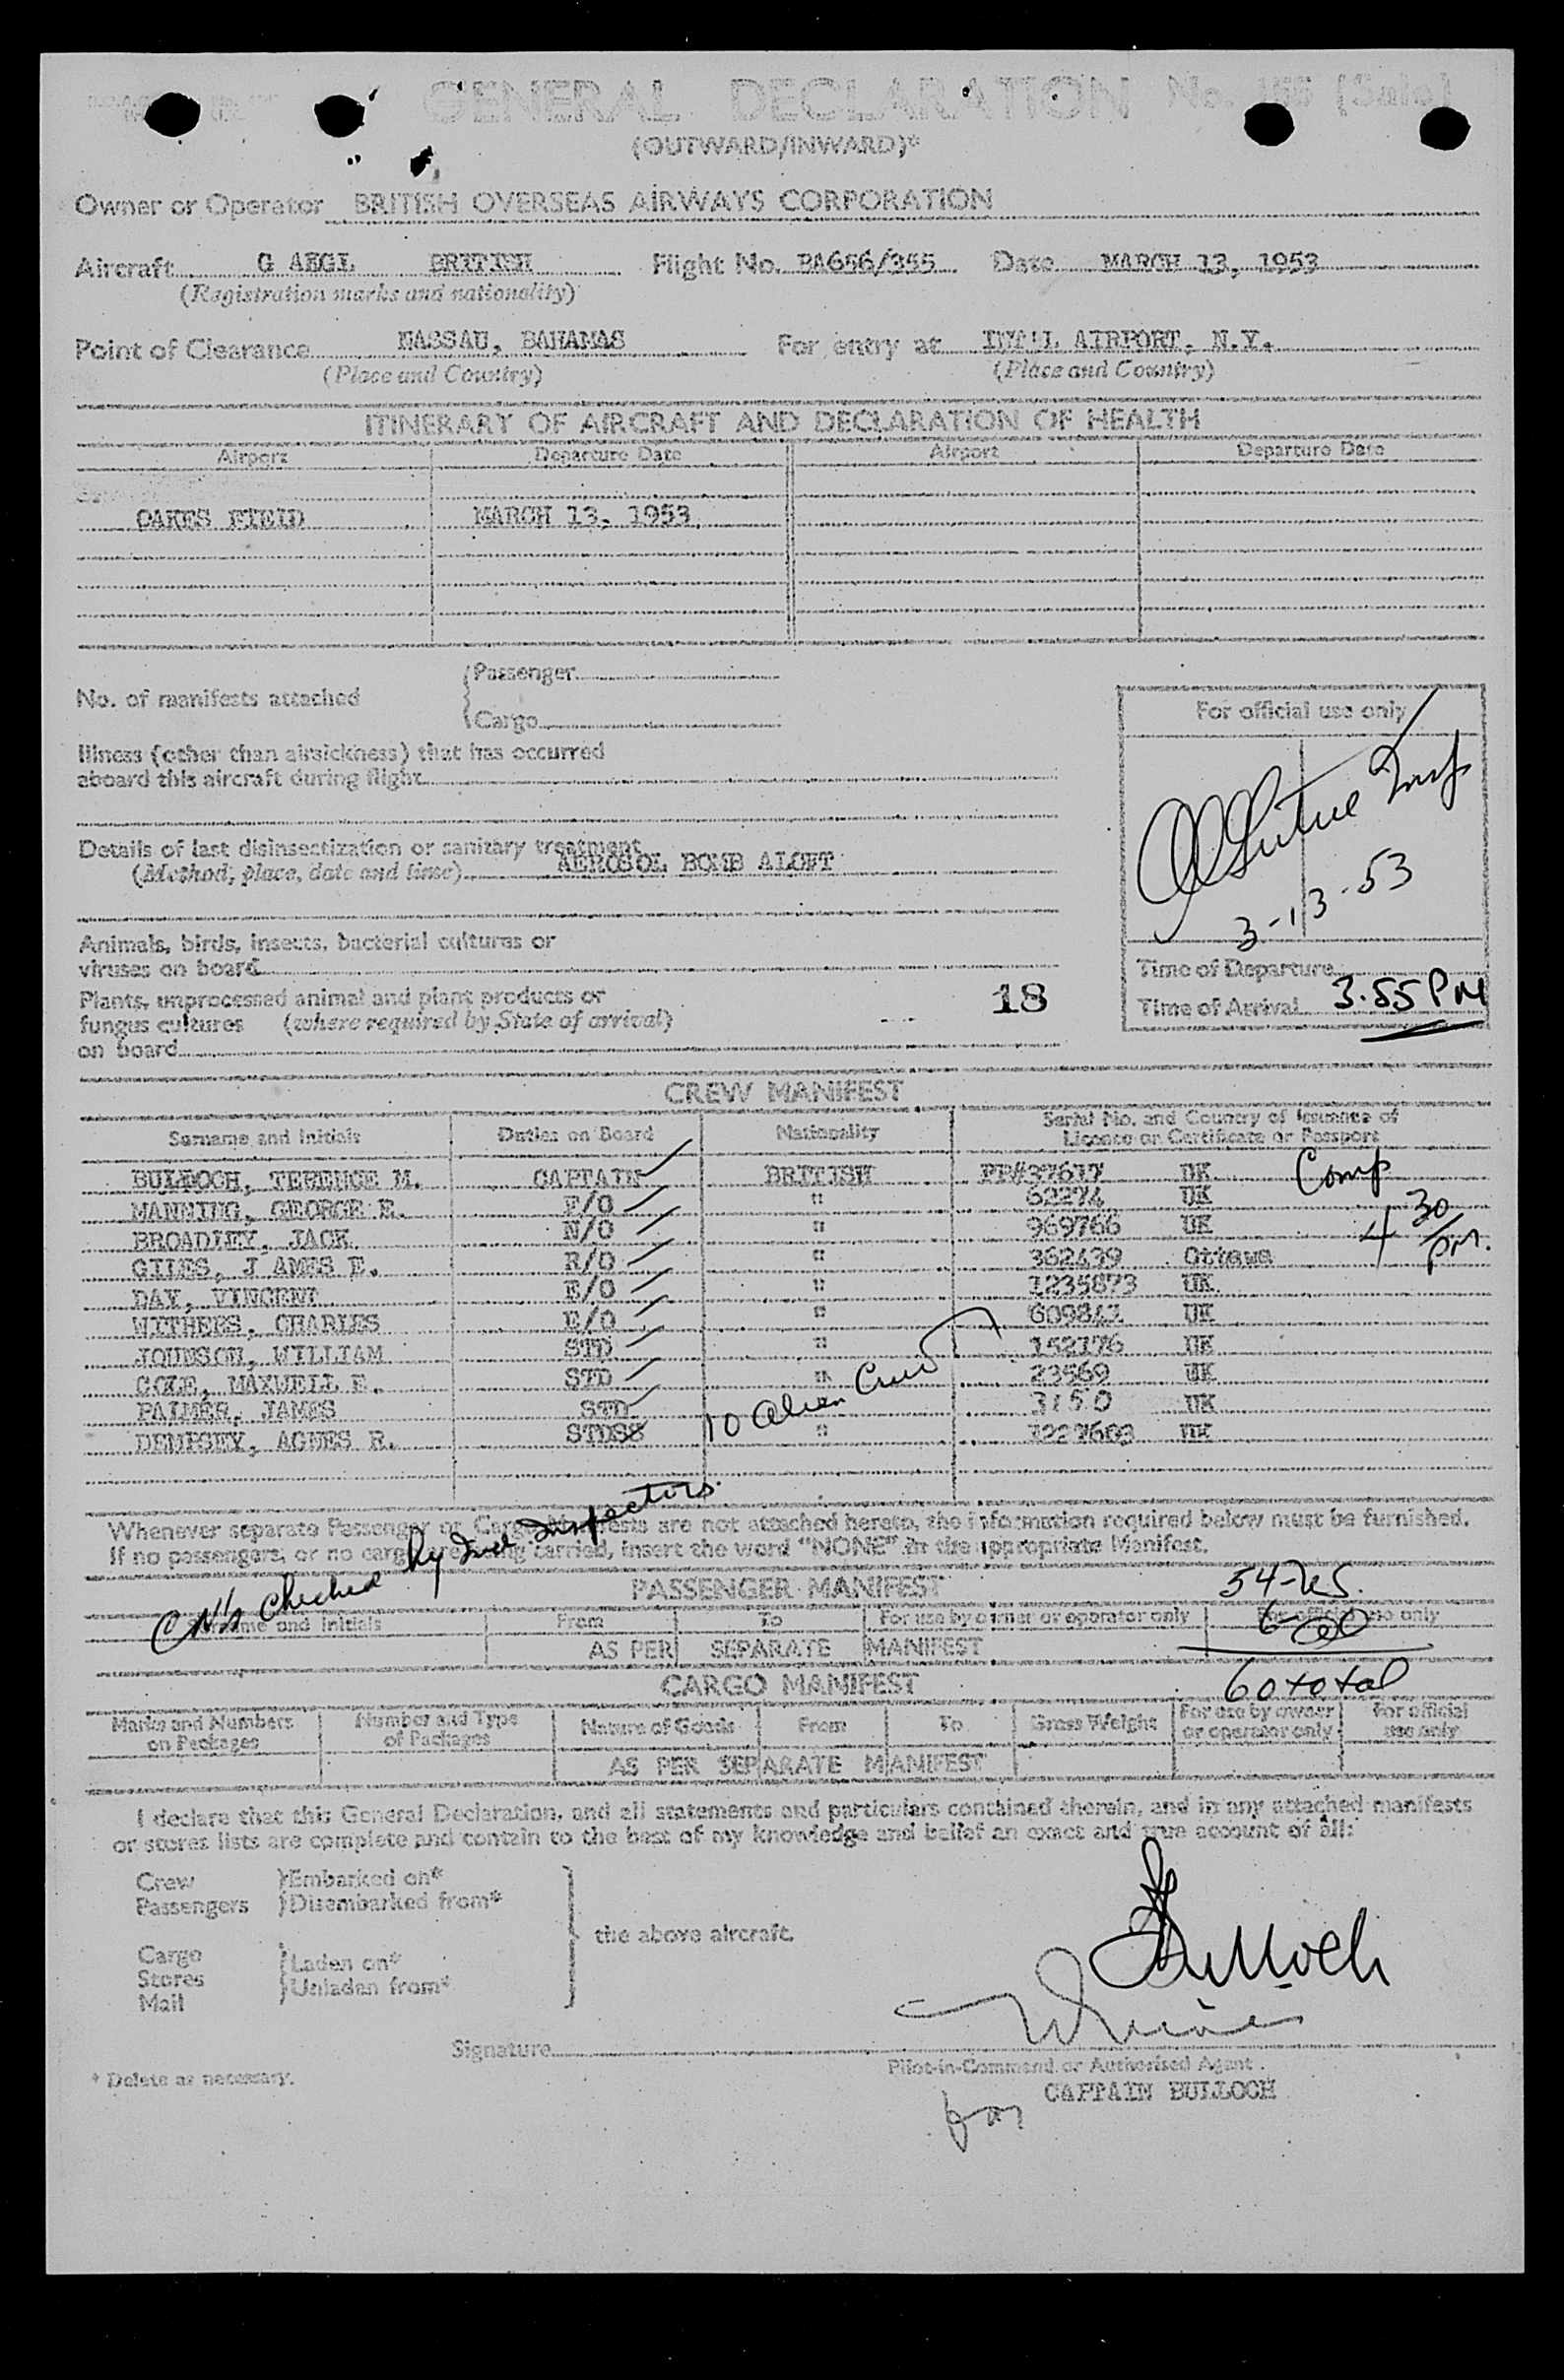 GENERAL DECLARATION No. (Sale)
(OUTWARD/INWARD)*
Owner or Operator BRITISH OVERSEAS AIRWAYS CORPORATION
Aircraft G AEGL BRITISH Flight No. BA656/355 Date MARCH 13, 1953
(Registration marks and nationality)
Point of Clearance NASSAU, BAHAMAS For entry at INT'L AIRPORT, N.Y.
(Place and Country) (Place and Country)
ITINERARY OF AIRCRAFT AND DECLARATION OF HEALTH
Airport Departure Date Airport Departure Date
OAKES FIELD MARCH 13, 1953
No. of manifests attached Passenger
Cargo
For official use only
Illness (other than airsickness) that has occurred
aboard this aircraft during flight
Details of last disinsectization or sanitary treatment
(Method, place, date and time) AEROSOL BOMB ALOFT
3-13-53
Animals, birds, insects, bacterial cultures or
viruses on board
Time of Departure
Plants, unprocessed animal and plant products or
fungus cultures (where required by State of arrival)
on board
18
Time of Arrival 3.55 PM
CREW MANIFEST
Surname and Initials Duties on Board Nationality Serial No. and Country of Issuance of
Licence or Certificate or Passport
BULLOCH, TERENCE M. CAPTAIN BRITISH PP#37617 UK Comp
MANNING, GEORGE E. F/O " 62274 UK 4 30
BROADLEY, JACK N/O " 969766 UK pm.
GILES, J AMES E. R/O " 362439 Ottawa
DAY, VINCENT E/O " 1235873 UK
WITHERS, CHARLES E/O " 609842 UK
JOHNSON, WILLIAM STD " 152176 UK
COLE, MAXWELL E. STD " 23569 UK
PALMER, JAMES STD 3150 UK
10 Alien Crew
DEMPSEY, AGNES R. STDSS " 1227603 UK
Whenever separate Passenger or Cargo Manifests are not attached hereto, the information required below must be furnished.
If no passengers, or no cargo are being carried, insert the word "NONE" in the appropriate Manifest.
Checked by Inspectors.
PASSENGER MANIFEST
54-US.
Surname and Initials From To For use by owner or operator only For official use only
6-
AS PER SEPARATE MANIFEST
60 total
CARGO MANIFEST
Marks and Numbers on Packages Number and Type of Packages Nature of Goods From To Gross Weight For use by owner or operator only For official use only
AS PER SEPARATE MANIFEST
I declare that this General Declaration, and all statements and particulars contained therein, and in any attached manifests
or stores lists are complete and contain to the best of my knowledge and belief an exact and true account of all:
Crew Embarked on*
Passengers Disembarked from*
the above aircraft.
Cargo Laden on*
Stores Unladen from*
Mail
Bulloch
Signature
Pilot-in-Command or Authorised Agent
* Delete as necessary.
for CAPTAIN BULLOCH